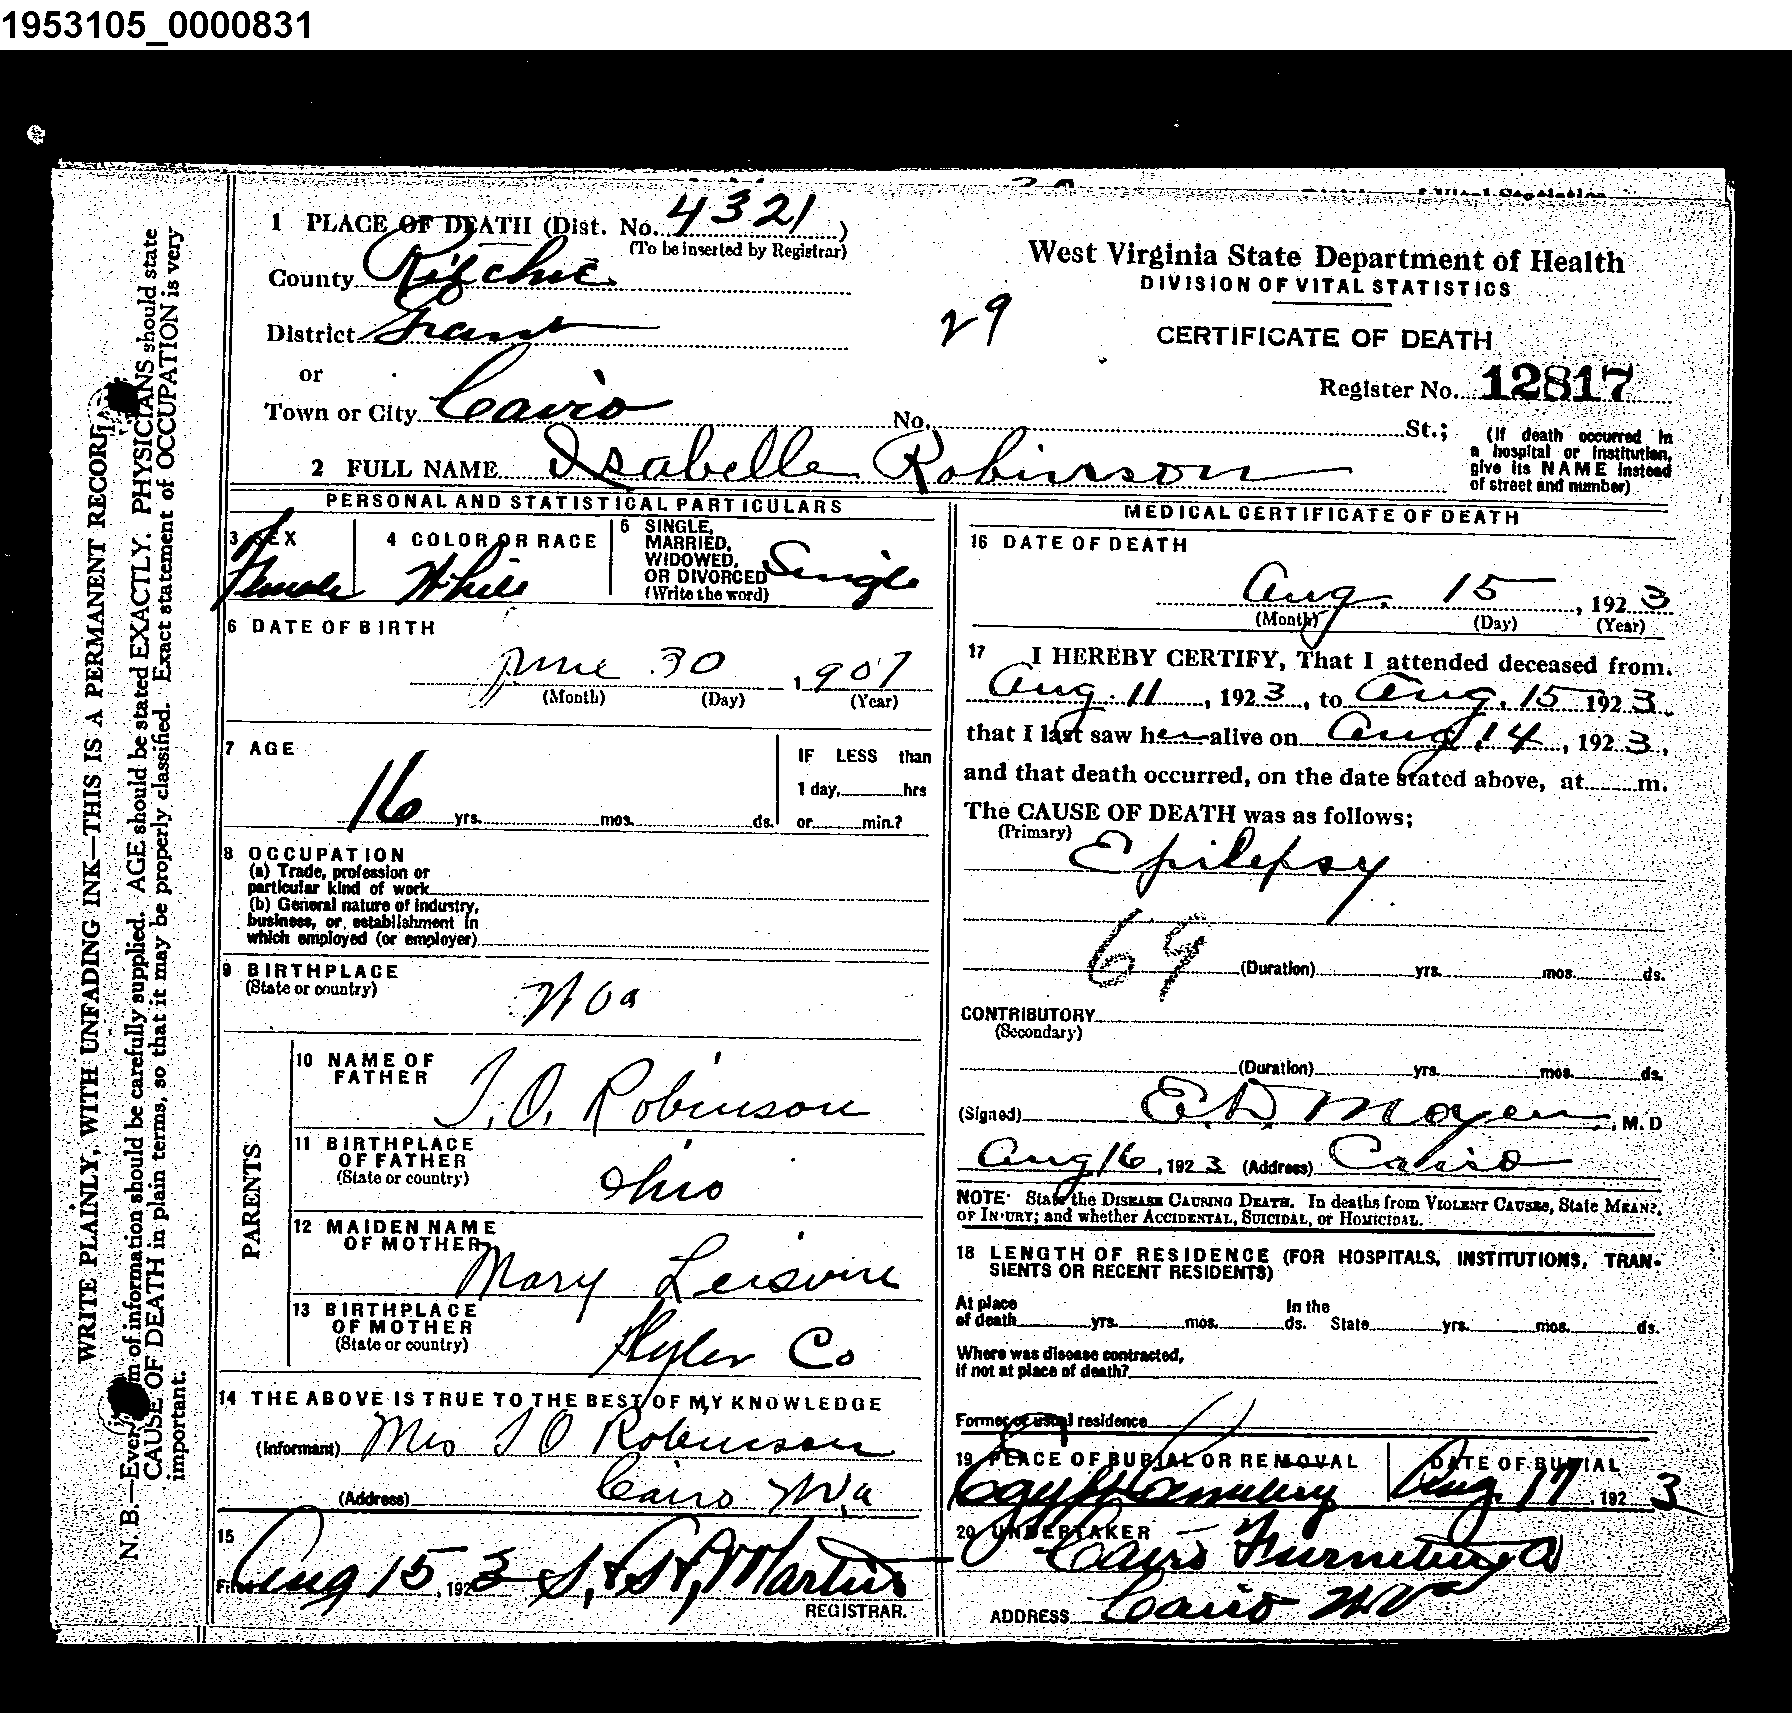 1953105_0000831
WRITE PLAINLY, WITH UNFADING INK—THIS IS A PERMANENT RECORD
N. B.—Every item of information should be carefully supplied. AGE should be stated EXACTLY. PHYSICIANS should state
CAUSE OF DEATH in plain terms, so that it may be properly classified. Exact statement of OCCUPATION is very
important.
1 PLACE OF DEATH (Dist. No. 4321)
(To be inserted by Registrar)
County Ritchie
District Grant
or
Town or City Cairo No. St.;
West Virginia State Department of Health
DIVISION OF VITAL STATISTICS
29
CERTIFICATE OF DEATH
Register No. 12817
(If death occurred in
a hospital or institution,
give its NAME instead
of street and number)
2 FULL NAME Isabelle Robinson
PERSONAL AND STATISTICAL PARTICULARS
3 SEX
Female
4 COLOR OR RACE
White
5 SINGLE,
MARRIED,
WIDOWED,
OR DIVORCED
(Write the word)
Single
6 DATE OF BIRTH
June 30, 1907
(Month) (Day) (Year)
7 AGE
16 yrs. mos. ds.
IF LESS than
1 day, hrs
or min.?
8 OCCUPATION
(a) Trade, profession or
particular kind of work
(b) General nature of industry,
business, or establishment in
which employed (or employer)
9 BIRTHPLACE
(State or country)
W Va
PARENTS
10 NAME OF
FATHER
T. O. Robinson
11 BIRTHPLACE
OF FATHER
(State or country)
Ohio
12 MAIDEN NAME
OF MOTHER
Mary
13 BIRTHPLACE
OF MOTHER
(State or country)
Tyler Co
14 THE ABOVE IS TRUE TO THE BEST OF MY KNOWLEDGE
(Informant) Mrs T O Robinson
(Address) Cairo W Va
15
Filed Aug 15, 1923 Martin
REGISTRAR.
MEDICAL CERTIFICATE OF DEATH
16 DATE OF DEATH
Aug. 15, 1923
(Month) (Day) (Year)
17 I HEREBY CERTIFY, That I attended deceased from
Aug. 11, 1923, to Aug. 15 1923
that I last saw her alive on Aug 14, 1923,
and that death occurred, on the date stated above, at m.
The CAUSE OF DEATH was as follows;
(Primary)
Epilepsy
69
(Duration) yrs. mos. ds.
CONTRIBUTORY
(Secondary)
(Duration) yrs. mos. ds.
(Signed) E. D. , M. D
Aug 16, 1923 (Address) Cairo
NOTE: State the DISEASE CAUSING DEATH. In deaths from VIOLENT CAUSES, State MEANS
OF INJURY; and whether ACCIDENTAL, SUICIDAL, or HOMICIDAL.
18 LENGTH OF RESIDENCE (FOR HOSPITALS, INSTITUTIONS, TRAN-
SIENTS OR RECENT RESIDENTS)
At place
of death yrs. mos. ds.
In the
State yrs. mos. ds.
Where was disease contracted,
if not at place of death?
Former or usual residence
19 PLACE OF BURIAL OR REMOVAL
Egypt Cemetery
DATE OF BURIAL
Aug. 17, 1923
20 UNDERTAKER
Cairo Furniture Co
ADDRESS Cairo W Va